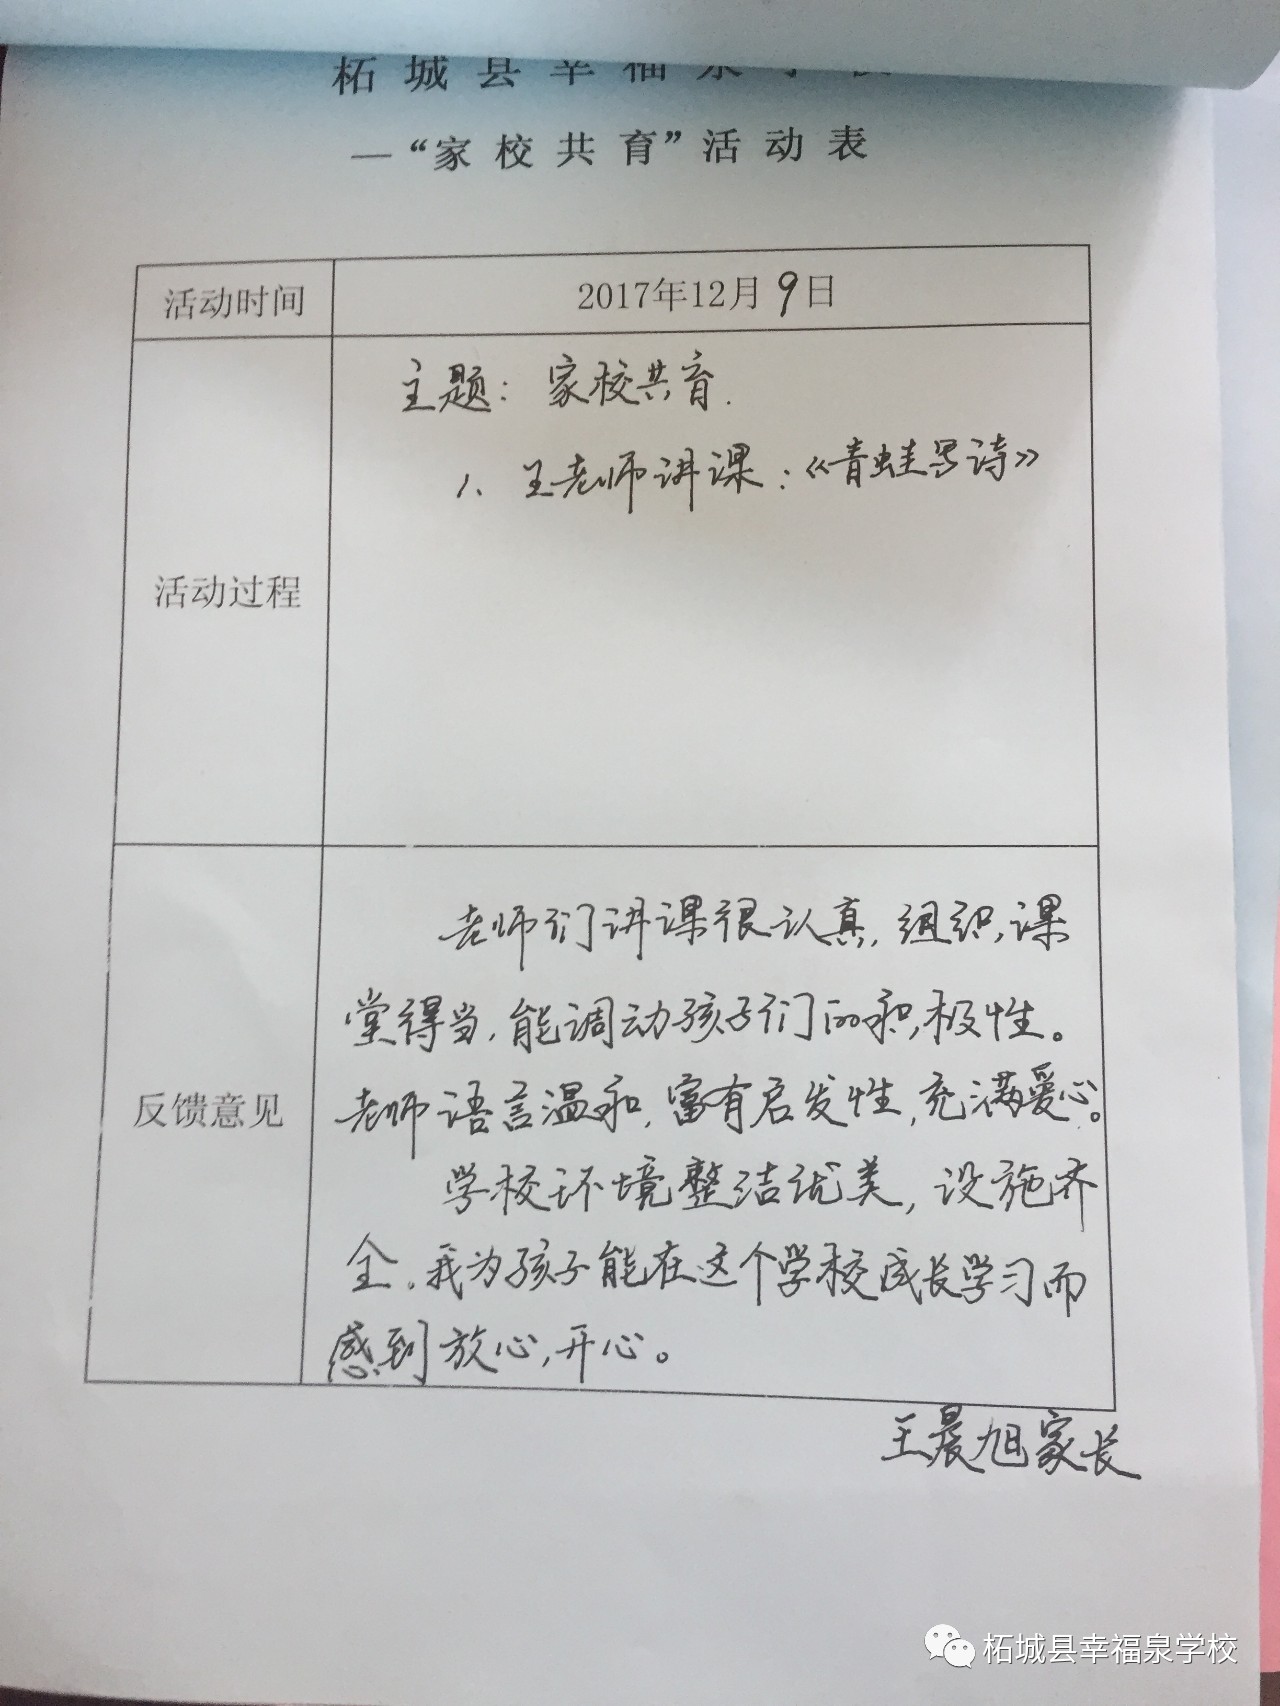 柘城县幸福泉学校
—“家校共育”活动表
活动时间
2017年12月9日
活动过程
主题：家校共育.
1、王老师讲课：《青蛙写诗》
反馈意见
老师们讲课很认真，组织课
堂得当，能调动孩子们的积极性。
老师语言温和，富有启发性，充满爱心。
学校环境整洁优美，设施齐
全，我为孩子能在这个学校成长学习而
感到放心，开心。
王晨旭家长
柘城县幸福泉学校